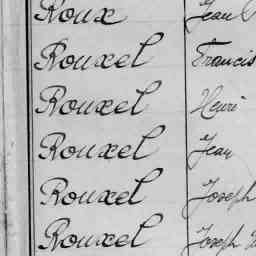 Roux Jean
Rouxel Francis
Rouxel Henri
Rouxel Jean
Rouxel Joseph
Rouxel Joseph